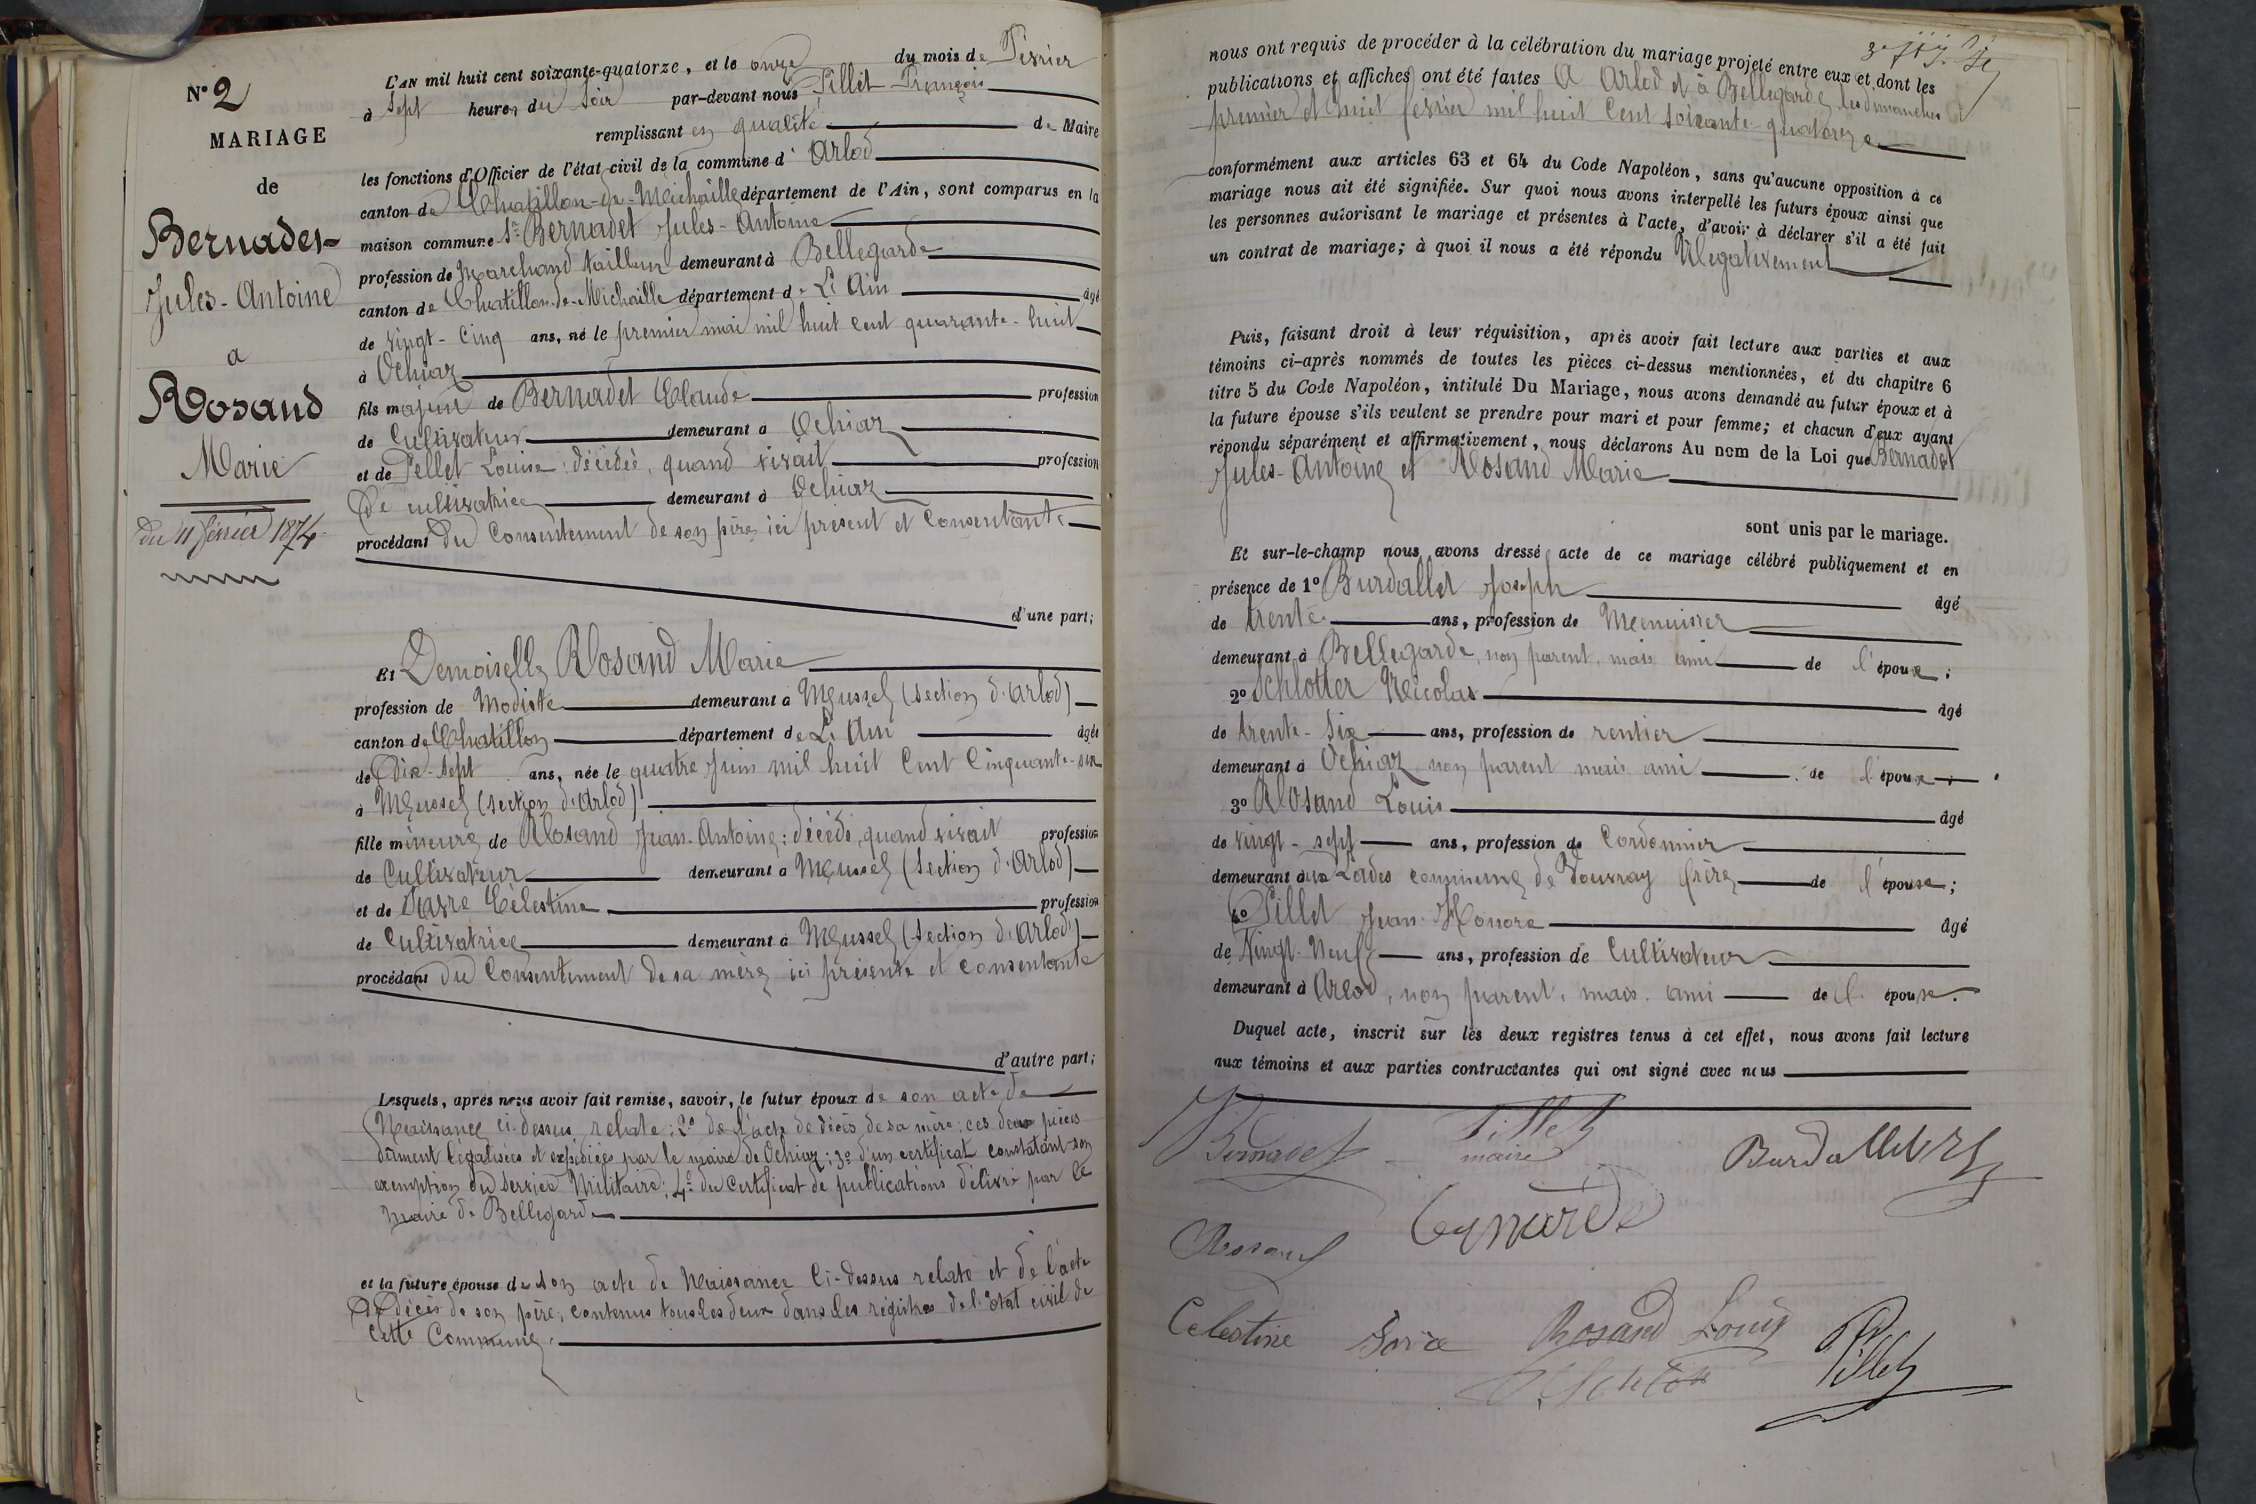 N° 2
MARIAGE
de
Bernadet
Jules-Antoine
a
Rosand
Marie
du 11 février 1874
L'AN mil huit cent soixante-quatorze, et le onze du mois de Février
à sept heures du soir par-devant nous Pillet François
remplissant en qualité de Maire
les fonctions d'Officier de l'état-civil de la commune d' Arlod
canton de Chatillon-de-Michaille département de l'Ain, sont comparus en la
maison commune Sr Bernadet Jules-Antoine
profession de Marchand tailleur demeurant à Bellegarde
canton de Chatillon-de-Michaille département de L'Ain âgé
de vingt-cinq ans, né le premier mai mil huit cent quarante-huit
à Ochiaz
fils majeur de Bernadet Claude profession
de Cultivateur demeurant à Ochiaz
et de Pellet Louise : décédée, quand vivait profession
De cultivatrice demeurant à Ochiaz
procédant du Consentement de son père ici présent et Consentant
d'une part;
Et Demoiselle Rosand Marie
profession de Modiste demeurant à Mussel (section d'Arlod)
canton de Chatillon département de L'Ain âgée
de Dix-sept ans, née le quatre Juin mil huit Cent Cinquante-six
à Mussel (section d'Arlod)
fille mineure de Rosand Jean-Antoine : décédé, quand vivait profession
de Cultivateur demeurant à Mussel (section d'Arlod)
et de Célestine profession
de Cultivatrice demeurant à Mussel (section d'Arlod)
procédant du Consentement de sa mère ici présente et consentante
d'autre part;
Lesquels, après nous avoir fait remise, savoir, le futur époux de son acte de
Naissance ci-dessus relaté ; 2° de l'acte de décès de sa mère : ces deux pièces
dûment légalisées et expédiées par le maire de Ochiaz ; 3° d'un certificat constatant son
exemption du service Militaire ; 4° du Certificat de publications délivré par le
maire de Bellegarde
et la future épouse de son acte de Naissance Ci-dessus relaté et de l'acte
de Décès de son père, contenus tous les deux dans les registres de l'état civil de
cette Commune.
nous ont requis de procéder à la célébration du mariage projeté entre eux et dont les
publications et affiches ont été faites à Arlod et à Bellegarde les dimanches
premier et huit février mil huit Cent soixante-quatorze
conformément aux articles 63 et 64 du Code Napoléon, sans qu'aucune opposition à ce
mariage nous ait été signifiée. Sur quoi nous avons interpellé les futurs époux ainsi que
les personnes autorisant le mariage et présentes à l'acte, d'avoir à déclarer s'il a été fait
un contrat de mariage; à quoi il nous a été répondu Négativement
Puis, faisant droit à leur réquisition, après avoir fait lecture aux parties et aux
témoins ci-après nommés de toutes les pièces ci-dessus mentionnées, et du chapitre 6
titre 5 du Code Napoléon, intitulé Du Mariage, nous avons demandé au futur époux et à
la future épouse s'ils veulent se prendre pour mari et pour femme; et chacun d'eux ayant
répondu séparément et affirmativement, nous déclarons Au nom de la Loi que Bernadet
Jules-Antoine et Rosand Marie
sont unis par le mariage.
Et sur-le-champ nous avons dressé acte de ce mariage célébré publiquement et en
présence de 1° Burdallet Joseph âgé
de trente ans, profession de Menuisier
demeurant à Bellegarde, non parent, mais ami de l'époux ;
2° Schlotter Nicolas âgé
de trente-six ans, profession de rentier
demeurant à Ochiaz non parent mais ami de l'époux ;
3° Rosand Louis âgé
de vingt-sept ans, profession de Cordonnier
demeurant aux Lades commune de Vouvray frère de l'épouse ;
4° Pillet Jean-Honoré âgé
de Vingt-Neuf ans, profession de Cultivateur
demeurant à Arlod, non parent, mais ami de l'épouse.
Duquel acte, inscrit sur les deux registres tenus à cet effet, nous avons fait lecture
aux témoins et aux parties contractantes qui ont signé avec nous
Bernadet Pillet Burdallet
maire
Rosand
Célestine Rosand Louis Pillet